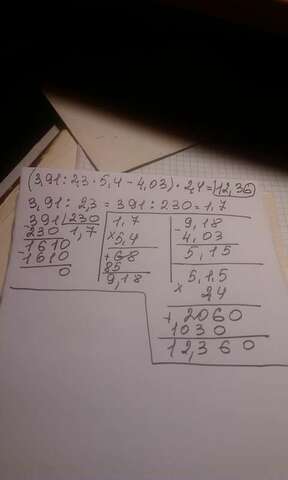 (3,91 : 2,3 · 5,4 - 4,03) · 2,4 = 12,36
3,91 : 2,3 = 391 : 230 = 1,7
391 230
230 1,7
1610
-1610
0
1,7
×5,4
+68
85
9,18
9,18
-4,03
5,15
5,15
× 2,4
+2060
1030
12,360